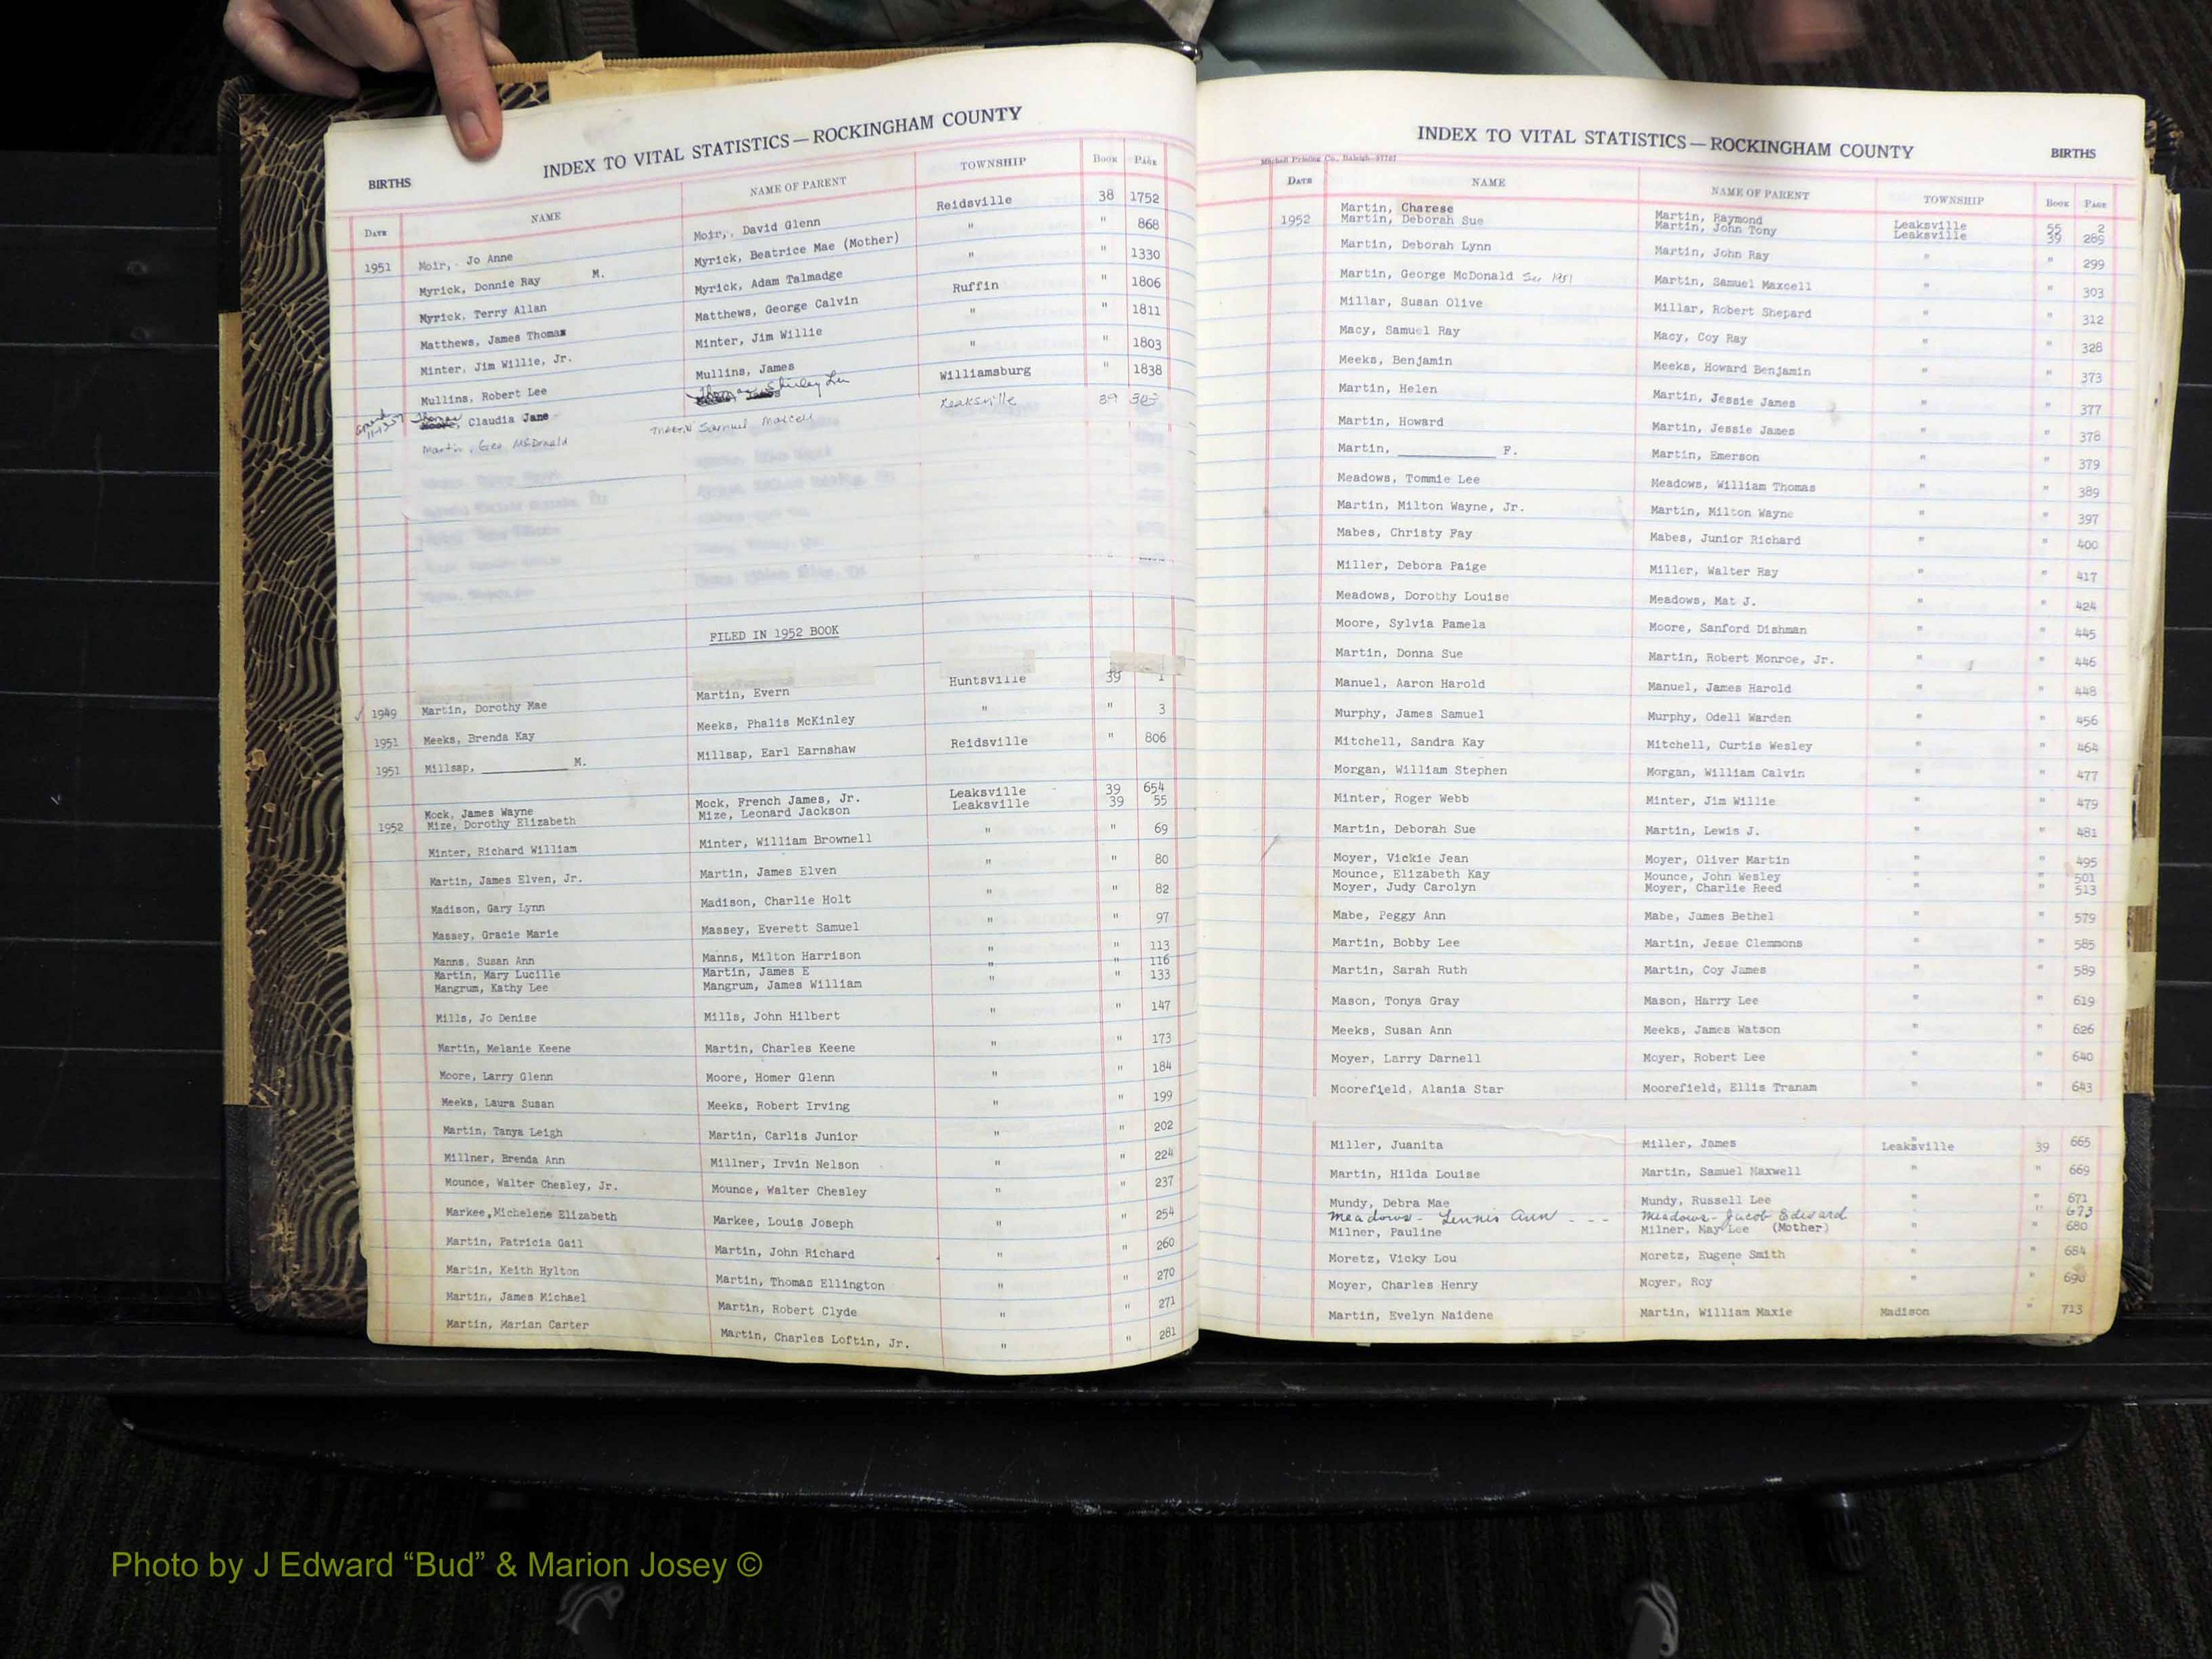 INDEX TO VITAL STATISTICS — ROCKINGHAM COUNTY
BIRTHS
DATE NAME NAME OF PARENT TOWNSHIP BOOK PAGE
1951 Moir, Jo Anne Moir,, David Glenn Reidsville 38 1752
Myrick, Donnie Ray M. Myrick, Beatrice Mae (Mother) " " 868
Myrick, Terry Allan Myrick, Adam Talmadge " " 1330
Matthews, James Thomas Matthews, George Calvin Ruffin " 1806
Minter, Jim Willie, Jr. Minter, Jim Willie " " 1811
Mullins, Robert Lee Mullins, James " " 1803
Claudia Jane Thomas Shirley Williamsburg " 1838
Martin, Geo McDonald Martin Samuel Maxcell Leaksville 39 303
FILED IN 1952 BOOK
1949 Martin, Dorothy Mae Martin, Evern Huntsville 39 1
1951 Meeks, Brenda Kay Meeks, Phalis McKinley " " 3
1951 Millsap, __________ M. Millsap, Earl Earnshaw Reidsville " 806
Mock, James Wayne Mock, French James, Jr. Leaksville 39 654
1952 Mize, Dorothy Elizabeth Mize, Leonard Jackson Leaksville 39 55
Minter, Richard William Minter, William Brownell " " 69
Martin, James Elven, Jr. Martin, James Elven " " 80
Madison, Gary Lynn Madison, Charlie Holt " " 82
Massey, Gracie Marie Massey, Everett Samuel " " 97
Manns, Susan Ann Manns, Milton Harrison " " 113
Martin, Mary Lucille Martin, James E " " 116
Mangrum, Kathy Lee Mangrum, James William " " 133
Mills, Jo Denise Mills, John Hilbert " " 147
Martin, Melanie Keene Martin, Charles Keene " " 173
Moore, Larry Glenn Moore, Homer Glenn " " 184
Meeks, Laura Susan Meeks, Robert Irving " " 199
Martin, Tanya Leigh Martin, Carlis Junior " " 202
Millner, Brenda Ann Millner, Irvin Nelson " " 224
Mounce, Walter Chesley, Jr. Mounce, Walter Chesley " " 237
Markee, Michelene Elizabeth Markee, Louis Joseph " " 254
Martin, Patricia Gail Martin, John Richard " " 260
Martin, Keith Hylton Martin, Thomas Ellington " " 270
Martin, James Michael Martin, Robert Clyde " " 271
Martin, Marian Carter Martin, Charles Loftin, Jr. " " 281
INDEX TO VITAL STATISTICS — ROCKINGHAM COUNTY
BIRTHS
Mitchell Printing Co., Raleigh—57787
DATE NAME NAME OF PARENT TOWNSHIP BOOK PAGE
Martin, Charese Martin, Raymond Leaksville 55 2
1952 Martin, Deborah Sue Martin, John Tony Leaksville 39 289
Martin, Deborah Lynn Martin, John Ray " " 299
Martin, George McDonald See 1951 Martin, Samuel Maxcell " " 303
Millar, Susan Olive Millar, Robert Shepard " " 312
Macy, Samuel Ray Macy, Coy Ray " " 328
Meeks, Benjamin Meeks, Howard Benjamin " " 373
Martin, Helen Martin, Jessie James " " 377
Martin, Howard Martin, Jessie James " " 378
Martin, ____________ F. Martin, Emerson " " 379
Meadows, Tommie Lee Meadows, William Thomas " " 389
Martin, Milton Wayne, Jr. Martin, Milton Wayne " " 397
Mabes, Christy Fay Mabes, Junior Richard " " 400
Miller, Debora Paige Miller, Walter Ray " " 417
Meadows, Dorothy Louise Meadows, Mat J. " " 424
Moore, Sylvia Pamela Moore, Sanford Dishman " " 445
Martin, Donna Sue Martin, Robert Monroe, Jr. " " 446
Manuel, Aaron Harold Manuel, James Harold " " 448
Murphy, James Samuel Murphy, Odell Warden " " 456
Mitchell, Sandra Kay Mitchell, Curtis Wesley " " 464
Morgan, William Stephen Morgan, William Calvin " " 477
Minter, Roger Webb Minter, Jim Willie " " 479
Martin, Deborah Sue Martin, Lewis J. " " 481
Moyer, Vickie Jean Moyer, Oliver Martin " " 495
Mounce, Elizabeth Kay Mounce, John Wesley " " 501
Moyer, Judy Carolyn Moyer, Charlie Reed " " 513
Mabe, Peggy Ann Mabe, James Bethel " " 579
Martin, Bobby Lee Martin, Jesse Clemmons " " 585
Martin, Sarah Ruth Martin, Coy James " " 589
Mason, Tonya Gray Mason, Harry Lee " " 619
Meeks, Susan Ann Meeks, James Watson " " 626
Moyer, Larry Darnell Moyer, Robert Lee " " 640
Moorefield, Alania Star Moorefield, Ellis Tranam " " 643
Miller, Juanita Miller, James Leaksville 39 665
Martin, Hilda Louise Martin, Samuel Maxwell " " 669
Mundy, Debra Mae Mundy, Russell Lee " " 671
Meadows - Lennis Ann - - - Meadows - Jacob Edward " " 673
Milner, Pauline Milner, May Lee (Mother) " " 680
Moretz, Vicky Lou Moretz, Eugene Smith " " 684
Moyer, Charles Henry Moyer, Roy " " 690
Martin, Evelyn Naidene Martin, William Maxie Madison " 713
Photo by J Edward “Bud” & Marion Josey ©